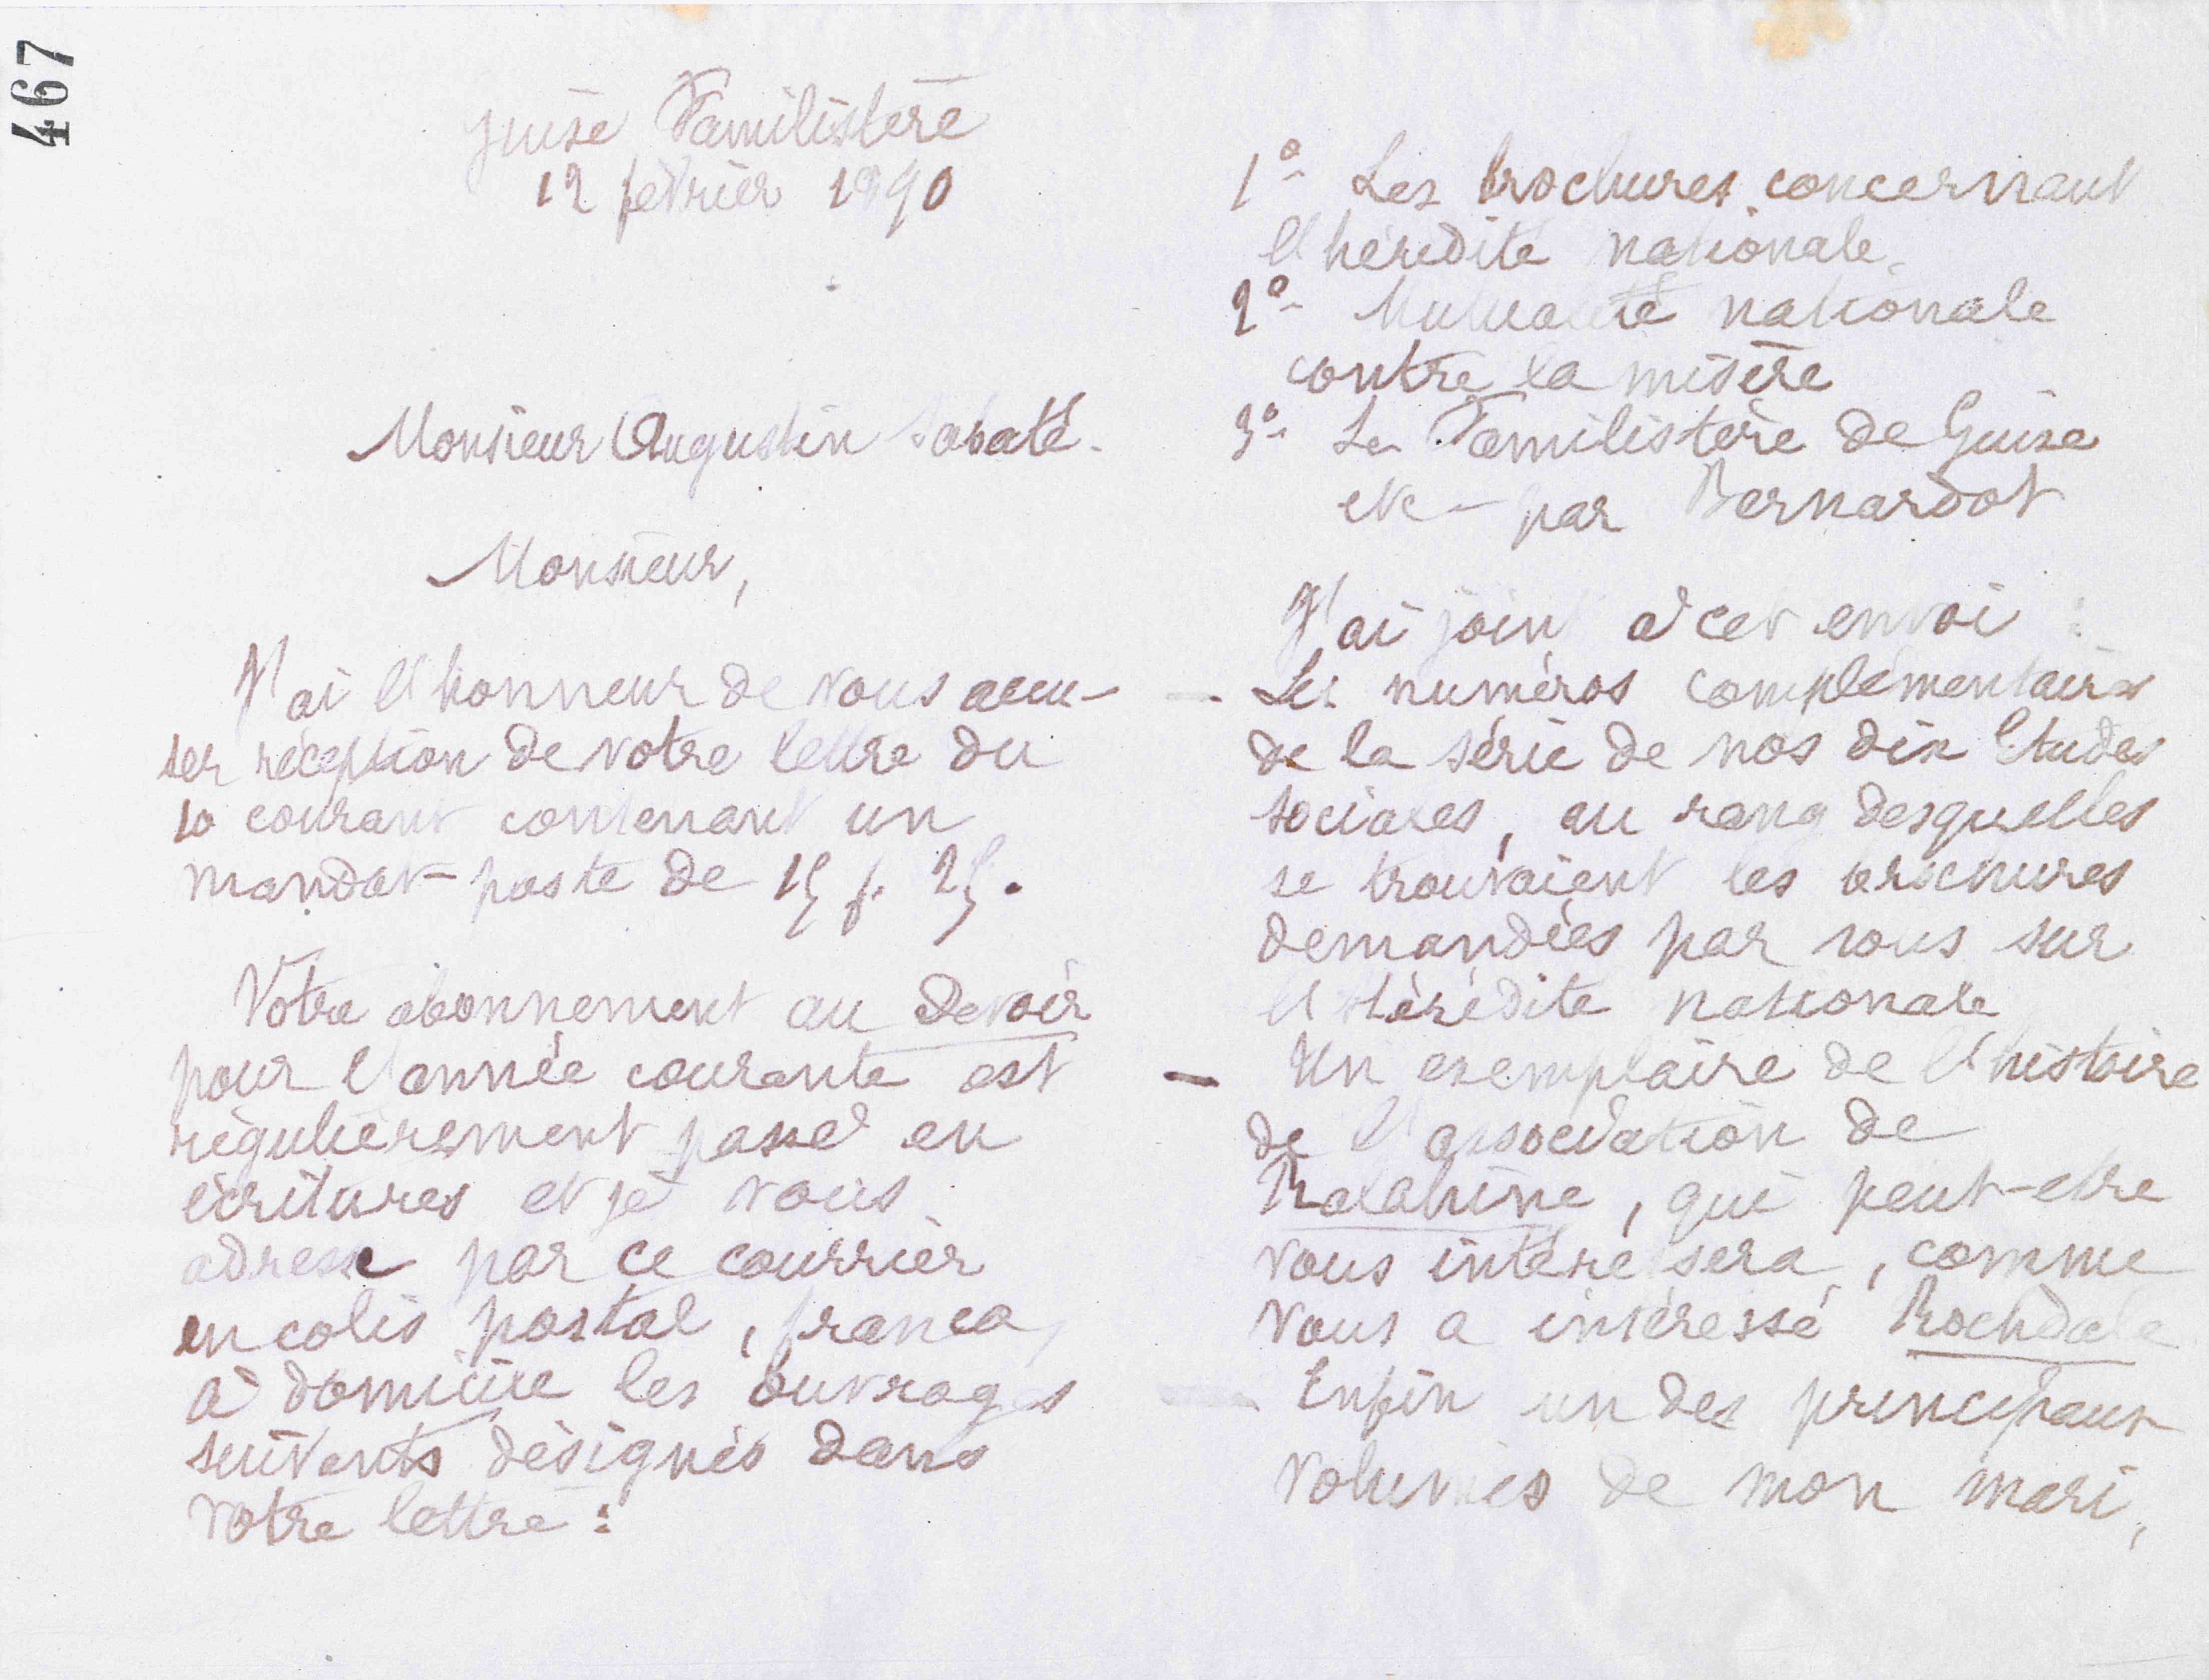 467
Guise Familistère
12 février 1890
Monsieur Augustin Sabaté.
Monsieur,
J'ai l'honneur de vous accu-
ser réception de votre lettre du
10 courant contenant un
mandat-poste de 15 f. 25.
Votre abonnement au Devoir
pour l'année courante est
régulièrement passé en
écritures et je vous
adresse par ce courrier
en colis postal, franco,
à domicile les ouvrages
suivants désignés dans
votre lettre :
1º- Les brochures concernant
l'hérédité nationale.
2º- Mutualité nationale
contre la misère
3º- Le Familistère de Guise
etc- par Bernardot
J'ai joint à cet envoi :
- Les numéros complémentaires
de la série de nos dix Etudes
sociales, au rang desquelles
se trouvaient les brochures
demandées par vous sur
l'Hérédité nationale
- Un exemplaire de l'histoire
de l'association de
Ralahine, qui peut-être
vous intéressera, comme
vous a intéressé Rochdale
- Enfin un des principaux
volumes de mon mari,